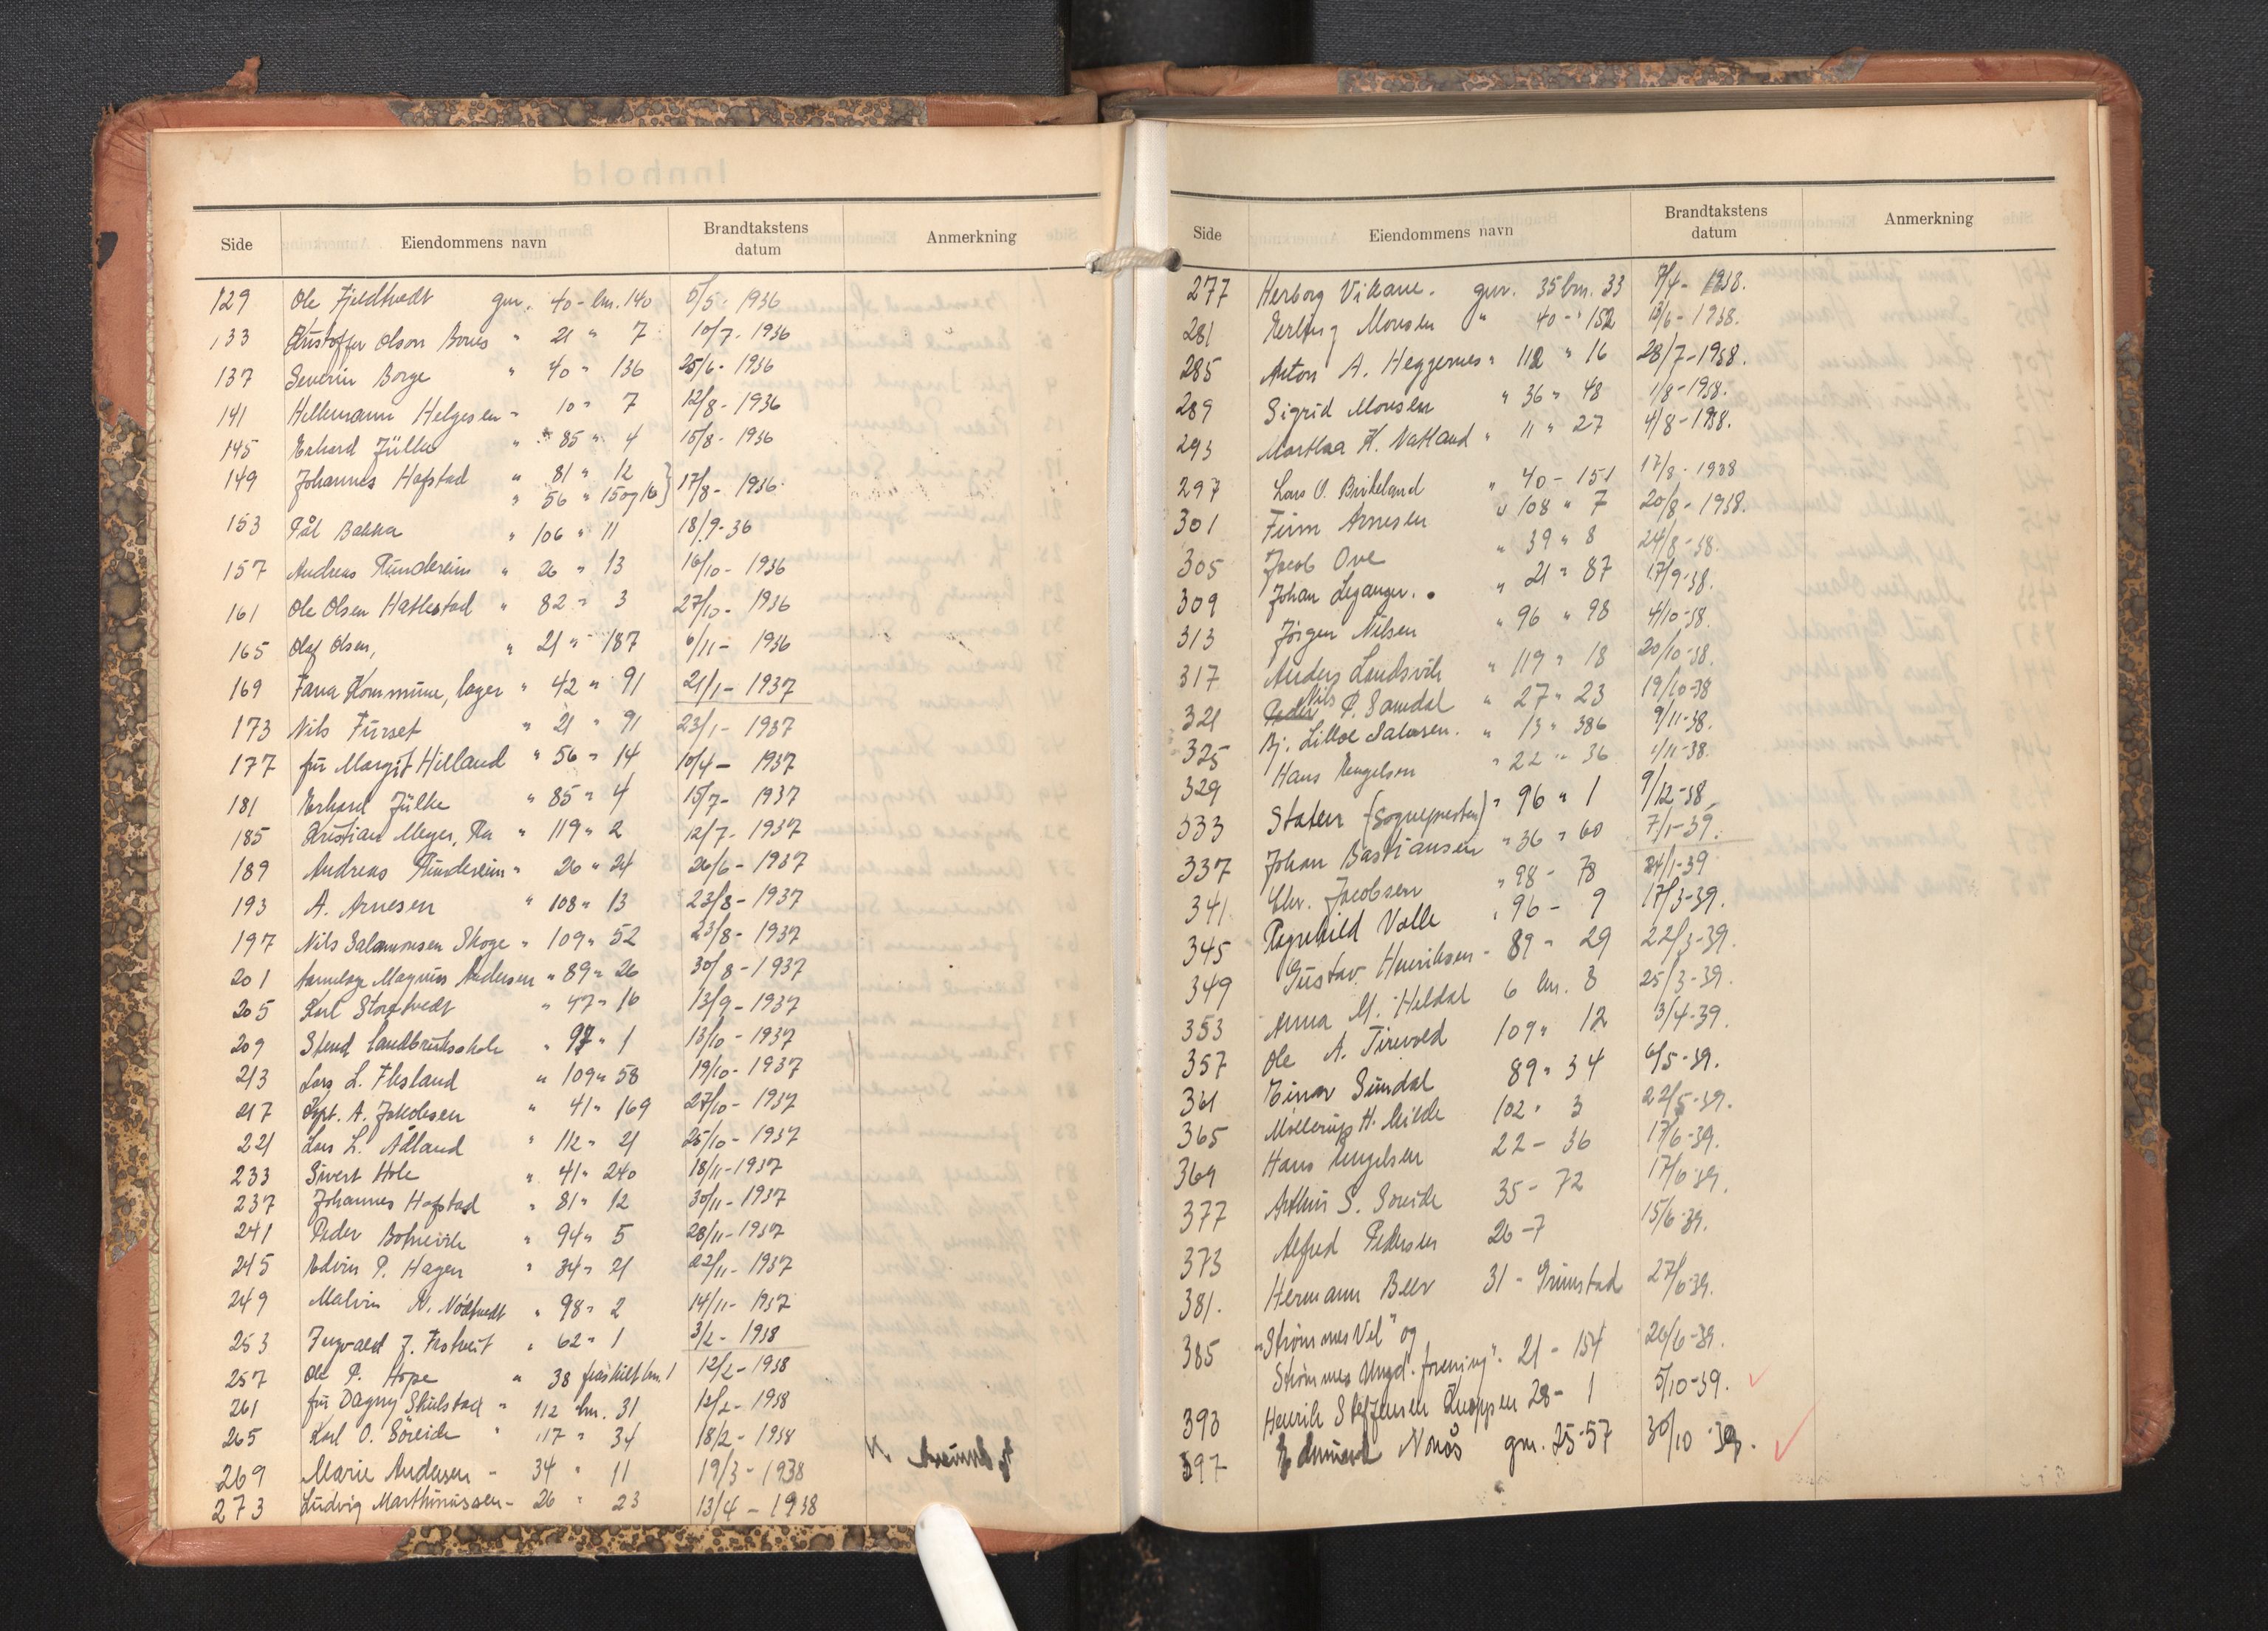 Side Eiendommens navn Brandtakstens datum Anmerkning
129 Ole Fjeldtvedt gnr. 40 - bn. 140 5/5 - 1936
133 Kristoffer Olson Bones " 21 " 7 10/7 - 1936
137 Severin Borge " 40 " 136 25/6 - 1936
141 Helgesen " 10 " 7 12/8 - 1936
145 Erhard Jülke " 85 " 4 15/8 - 1936
149 Johannes Hofstad " 81 " 12
" 56 " 15 og 16 } 17/8 - 1936
153 Pål Bakka " 106 " 11 18/9 - 36
157 Andreas Rundereim " 26 " 13 16/10 - 1936
161 Ole Olsen Hatlestad " 82 " 3 27/10 - 1936
165 Olaf Olsen, " 21 " 187 6/11 - 1936
169 Fana Kommune, lager " 42 " 91 21/1 - 1937
173 Nils Furset " 21 " 91 23/1 - 1937
177 fru Margit Hilland " 56 " 14 10/4 - 1937
181 Erhard Jülke " 85 " 4 15/7 - 1937
185 Kristian Meyer, Ra " 119 " 2 12/7 - 1937
189 Andreas Rundereim " 26 " 24 26/6 - 1937
193 A. Arnesen " 108 " 13 23/8 - 1937
197 Nils Salamonsen Skoge " 109 " 52 23/8 - 1937
201 Magnus Andersen " 89 " 26 30/8 - 1937
205 Karl Storetvedt " 47 " 16 13/9 - 1937
209 Stend landbruksskole " 97 " 1 13/10 - 1937
213 Lars L. Flesland " 109 " 58 19/10 - 1937
217 Kpt. A. Jakobsen " 41 " 169 27/10 - 1937
221 Lars L. Ådland " 112 " 21 25/10 - 1937
233 Sivert Hole " 41 " 240 18/11 - 1937
237 Johannes Hofstad " 81 " 12 30/11 - 1937
241 Peder Botnevik " 94 " 5 28/11 - 1937
245 Edvin P. Hagen " 34 " 21 22/11 - 1937
249 Malvin N. Nödtvedt " 98 " 2 14/11 - 1937
253 Ingvald J. Frotveit " 62 " 1 3/2 - 1938
257 Ole P. Hope " 38 fraskilt bn. 1 12/2 - 1938
261 fru Dagny Skulstad " 112 bn. 31 12/2 - 1938
265 Karl O. Söreide " 117 " 34 18/2 - 1938
269 Marie Andersen - 34 " 11 19/3 - 1938
273 Ludvig Marthinussen - 26 " 23 13/4 - 1938
Side Eiendommens navn Brandtakstens datum Anmerkning
277 Herborg Vikane - gnr. 35 bn. 33 7/4 - 1938.
281 Erling Monsen " 40 - " 152 13/6 - 1938.
285 Anton A. Heggernes " 112 " 16 28/7 - 1938.
289 Sigrid Monsen " 36 " 48 1/8 - 1938.
293 Marthea K. Natland " 11 " 27 4/8 - 1938.
297 Lars O. Birkeland " 40 - 151 17/8 - 1938
301 Finn Arnesen " 108 " 7 20/8 - 1938.
305 Jacob Ove " 39 " 8 24/8 - 38.
309 Johan Leganger. " 21 " 87 17/9 - 38.
313 Jörgen Nilsen " 96 " 98 4/10 - 38.
317 Anders Landsvik " 119 " 18 20/10 - 38.
321 Peder Nils P. Samdal " 27 " 23 19/10 - 38
325 Bj. Lilloe Salvesen. " 13 " 386 9/11 - 38.
329 Hans Engelsen " 22 " 36 1/11 - 38.
333 Staten (Sognepresten) " 96 " 1 9/12 - 38
337 Johan Bastiansen " 36 " 60 7/1 - 39.
341 Chr. Jacobsen " 98 - 78 24/1 - 39
345 Ragnhild Valle " 96 - 9 17/3 - 39.
349 Gustav Henriksen - 89 " 29 22/3 - 39.
353 Anna M. Heldal 6 bn. 8 25/3 - 39.
357 Ole A. Tirevold 109 " 12 3/4 - 39.
361 Einar Sundal 89 " 34 6/5 - 39.
365 Möllerup H. Milde 102 " 3 22/5 - 39.
369 Hans Engelsen 22 - 36 17/6 - 39.
377 Arthur S. Soreide 35 - 72 17/6 39.
373 Alfred Pedersen 26 - 7 15/6 - 39.
381. Hermann Beer 31 - Grimstad 27/6 39.
385 "Strømmes Vel" og
Strømmes Ungd. forening". 21 - 154 26/6 - 39.
393 Henrik Steffensen Knappen 28 - 1 5/10 - 39.
397 Edmund Nonås gnr. 25-57 30/10 - 39.